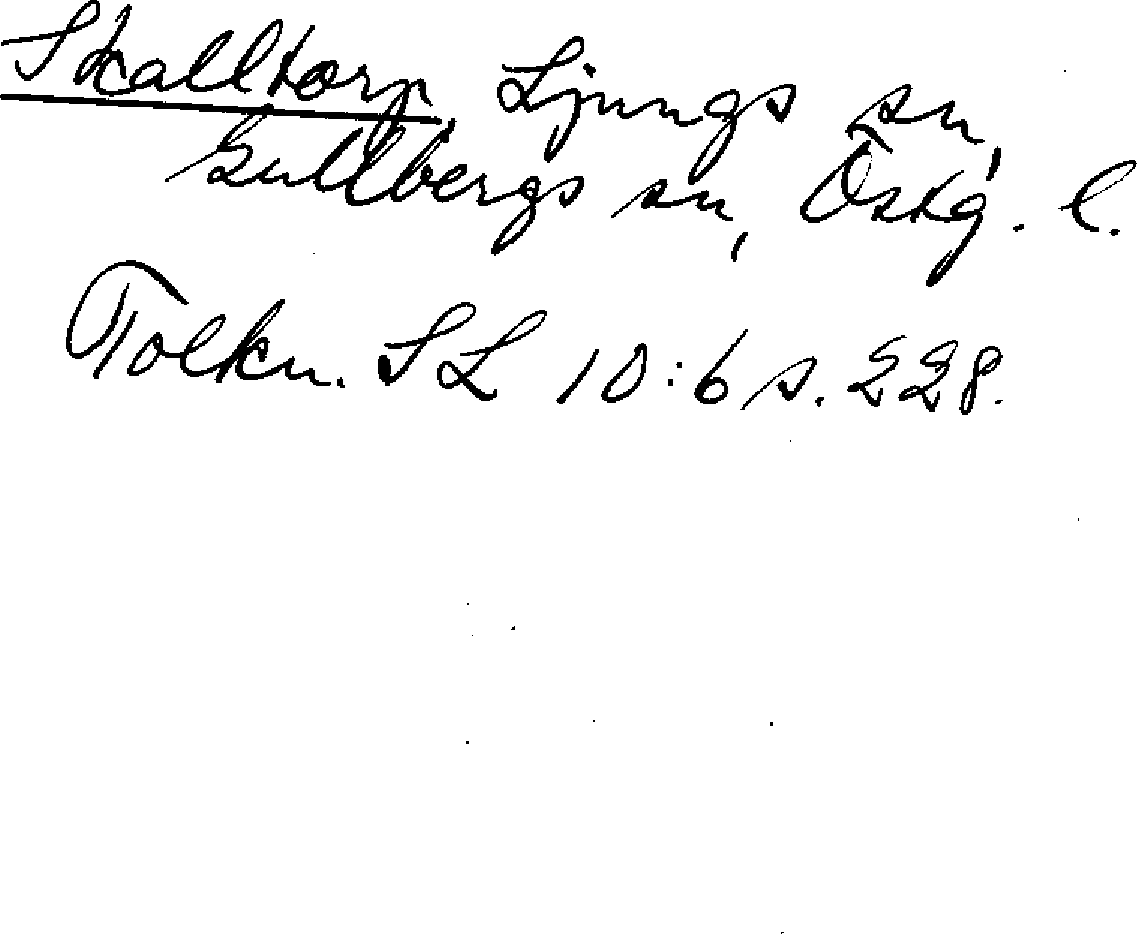 Skalltorp, Ljungs sn,
Gullbergs sn, Östg. l.
Tolkn. SL 10:6 s. 228.